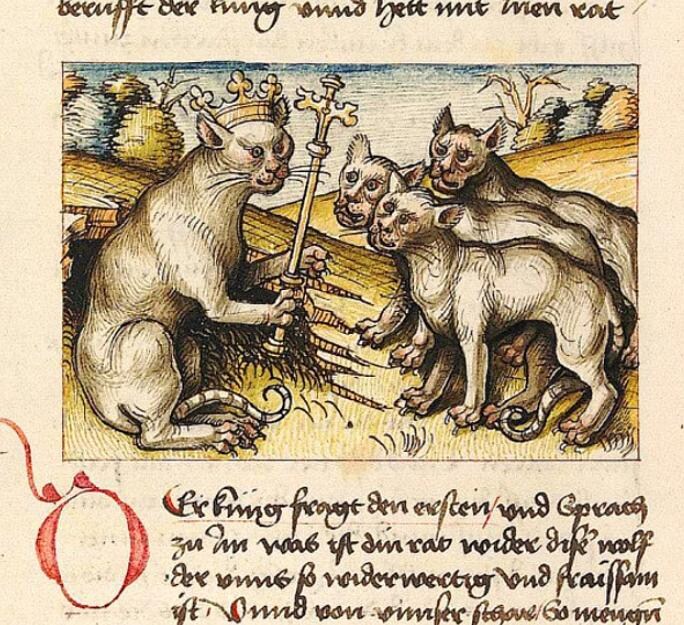 berufft der kung vnnd hett mit Inen rat /
DEr küng fragt den ersten / vnd Sprach
zu Im was ist din rat wider dise wolf
der vnns so widerwertig vnd fraissam
ist. Vnnd von vnnser schar / So mengen